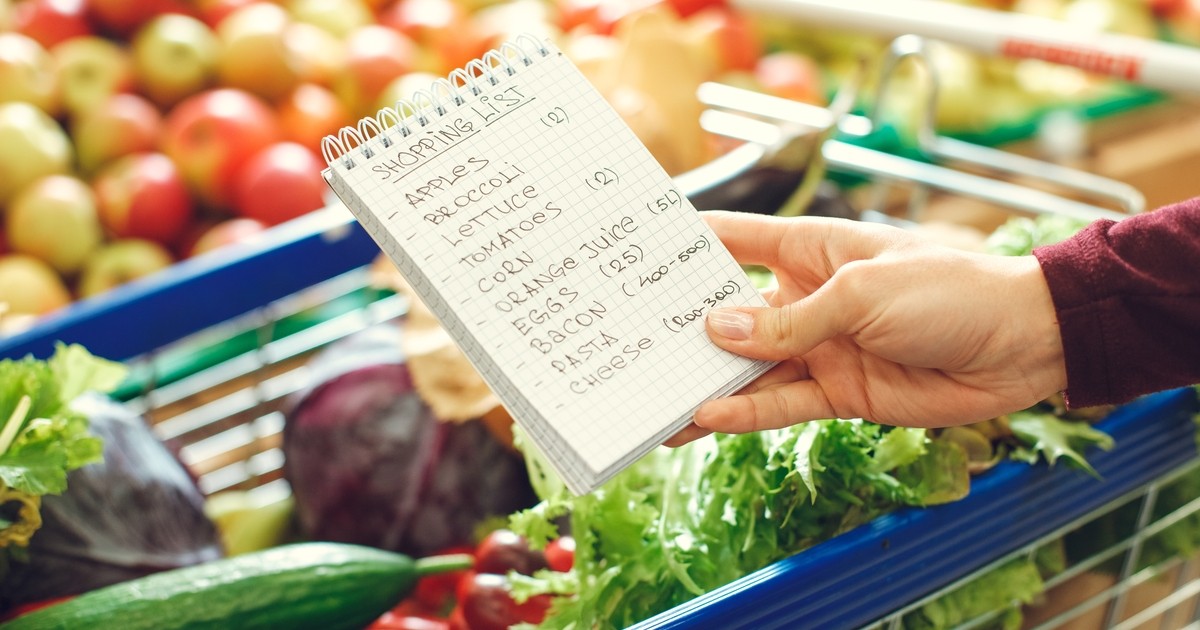 SHOPPING LIST
- APPLES (2)
- BROCCOLI
- LETTUCE
- TOMATOES (2)
- CORN
- ORANGE JUICE (5L)
- EGGS (25)
- BACON (400-500)
- PASTA
- CHEESE (200-300)